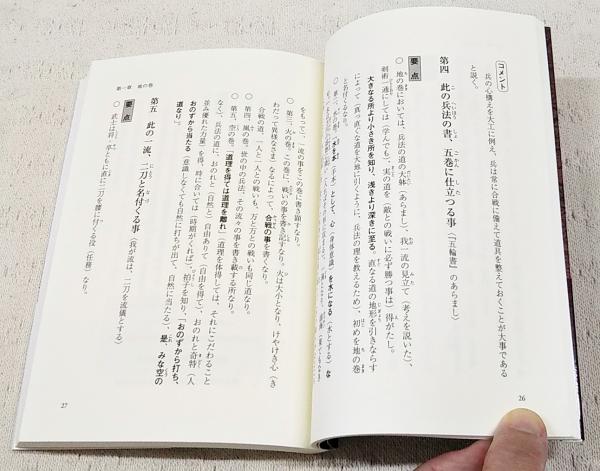 コメント
兵の心構えを大工に例え、兵は常に合戦に備えて道具を整えておくことが大事である
と説く。
第四 此の兵法の書、五巻に仕立つる事（『五輪書』のあらまし）
要点
○ 地の巻においては、兵法の道の大躰（あらまし）、我一流の見立て（考えを説いた）、
剣術一通にしては（学んでも）、実の道を（敵との戦いに必ず勝つ事は）得がたし。
大きなる所より小さき所を知り、浅きより深きに至る。直なる道の地形を引きならす
によって（真っ直ぐな道を大地に引くように、兵法の理を教えるため）、初めを地の巻
と名付くるなり。
をもって、一流の事をこの巻に書き顕すなり。
○ 第三、火の巻。この巻に、戦いの事を書き記すなり。火は大小となり、けやけき心（き
わだって異様なさま）なるによって、合戦の事を書くなり。
合戦の道、一人と一人との戦いも、万と万との戦いも同じ道なり。
○ 第四、風の巻。世の中の兵法、その流々の事を書き載する所なり。
○ 第五、空の巻。「道理を得ては道理を離れ」（道理を体得しては、それにこだわること
なく）、兵法の道に、おのれと（自然と）自由ありて（自由を得て）、おのれと奇特（人
並み優れた力量）を得、時に合いては（時期がくれば）、拍子を知り、「おのずから打ち、
おのずから当たる（意識しなくても自然に打ちが出て、自然に当たる）、是、みな空の
道なり」。
第五 此の一流、二刀と名付くる事
要点
○ 武士は将・卒ともに直に二刀を腰に付くる役（任務）なり。（我が流は、二刀を流儀とする）
第一章 地の巻
26
27